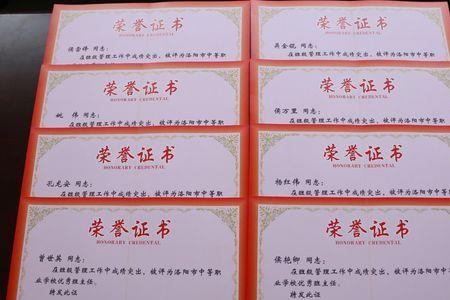 荣誉证书
HONORARY CREDENTAL
侯雪锋 同志：
在班级管理工作中成绩突出，被评为洛阳市中等职
荣誉证书
HONORARY CREDENTAL
吴金锟 同志：
在班级管理工作中成绩突出，被评为洛阳市中等职
荣誉证书
HONORARY CREDENTAL
姚 伟 同志：
在班级管理工作中成绩突出，被评为洛阳市中等职
荣誉证书
HONORARY CREDENTAL
侯万里 同志：
在班级管理工作中成绩突出，被评为洛阳市中等职
荣誉证书
HONORARY CREDENTAL
孔龙安 同志：
在班级管理工作中成绩突出，被评为洛阳市中等职
荣誉证书
HONORARY CREDENTAL
杨红伟 同志：
在班级管理工作中成绩突出，被评为洛阳市中等职
荣誉证书
HONORARY CREDENTAL
曾世英 同志：
在班级管理工作中成绩突出，被评为洛阳市中等职
业学校优秀班主任。
特发此证
荣誉证书
HONORARY CREDENTAL
侯艳卿 同志：
在班级管理工作中成绩突出，被评为洛阳市中等职
业学校优秀班主任。
特发此证